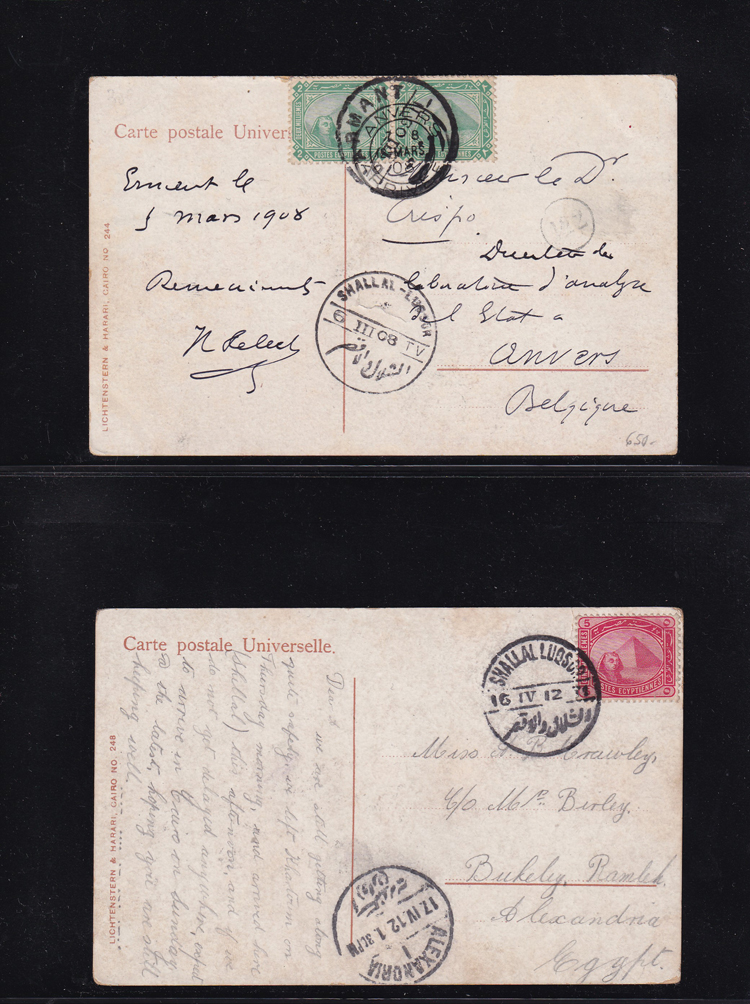 Carte postale Univers
Erment le
5 mars 1908
Remerciments
Monsieur le Dr
Crispo
Directeur du
laboratoire d'analyse
de l'Etat à
Anvers
Belgique
ARMANT
ANVERS
8 MARS
08
SHALLAL-LUQSOR
6 III 08 T V
الشلال والاقصر
LICHTENSTERN & HARARI, CAIRO NO. 244
650-
Carte postale Universelle.
POSTES EGYPTIENNES
5
SHALLAL LUQSOR
16 IV 12
الشلال والاقصر
Miss A. B. Crawley,
c/o Mrs. Birley.
Bukeley, Ramleh
Alexandria
Egypt.
ALEXANDRIA
17. IV. 12. 1. 30 PM
Dear
we are still getting along
quite safely, we left Khartoum on
Thursday morning, and arrived here
(Shellal) this afternoon and if we
do not get delayed anywhere, expect
to arrive in Cairo on Sunday
@ the latest, hoping you are still
keeping well.
LICHTENSTERN & HARARI, CAIRO NO. 248